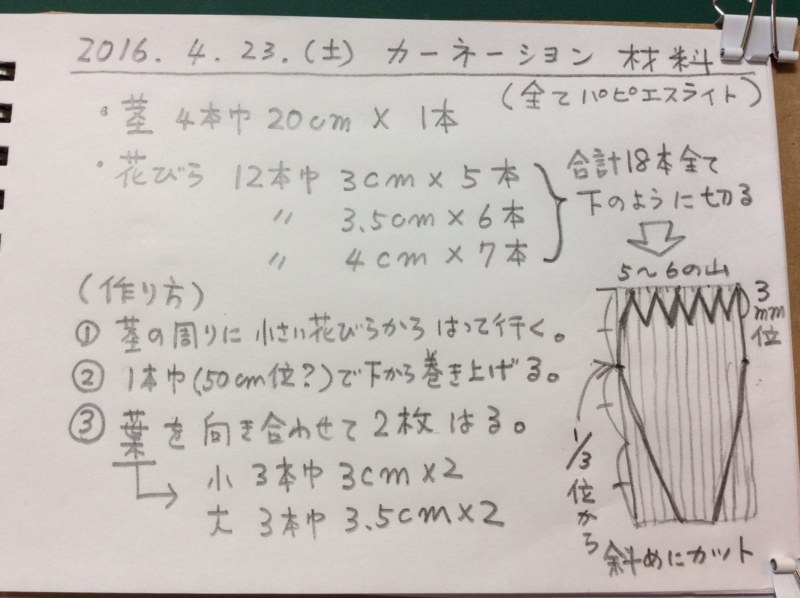 2016. 4. 23. (土) カーネーション 材料
(全てパピエスライト)
・茎 4本巾 20cm × 1本
・花びら 12本巾 3cm × 5本
〃 3.5cm × 6本
〃 4cm × 7本
合計18本全て
下のように切る
5〜6の山
3mm位
1/3位から
斜めにカット
(作り方)
① 茎の周りに小さい花びらからはって行く。
② 1本巾(50cm位?)で下から巻き上げる。
③ 葉を向き合わせて2枚はる。
小 3本巾 3cm×2
大 3本巾 3.5cm×2